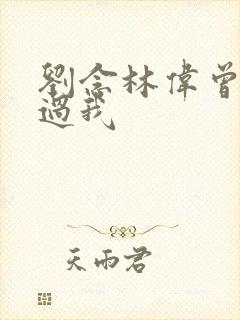 劉念林偉曾
過我
天雨君